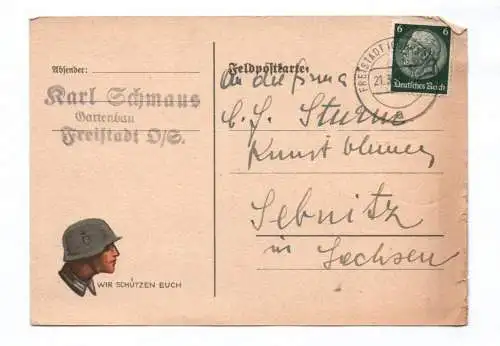 Absender:
Karl Schmaus
Gartenbau
Freistadt O/S.
WIR SCHÜTZEN EUCH
Feldpostkarte
An die Firma
C. F. Sturm
Kunstblumen
Sebnitz
in Sachsen
FREISTADT
21.3
6 6
Deutsches Reich